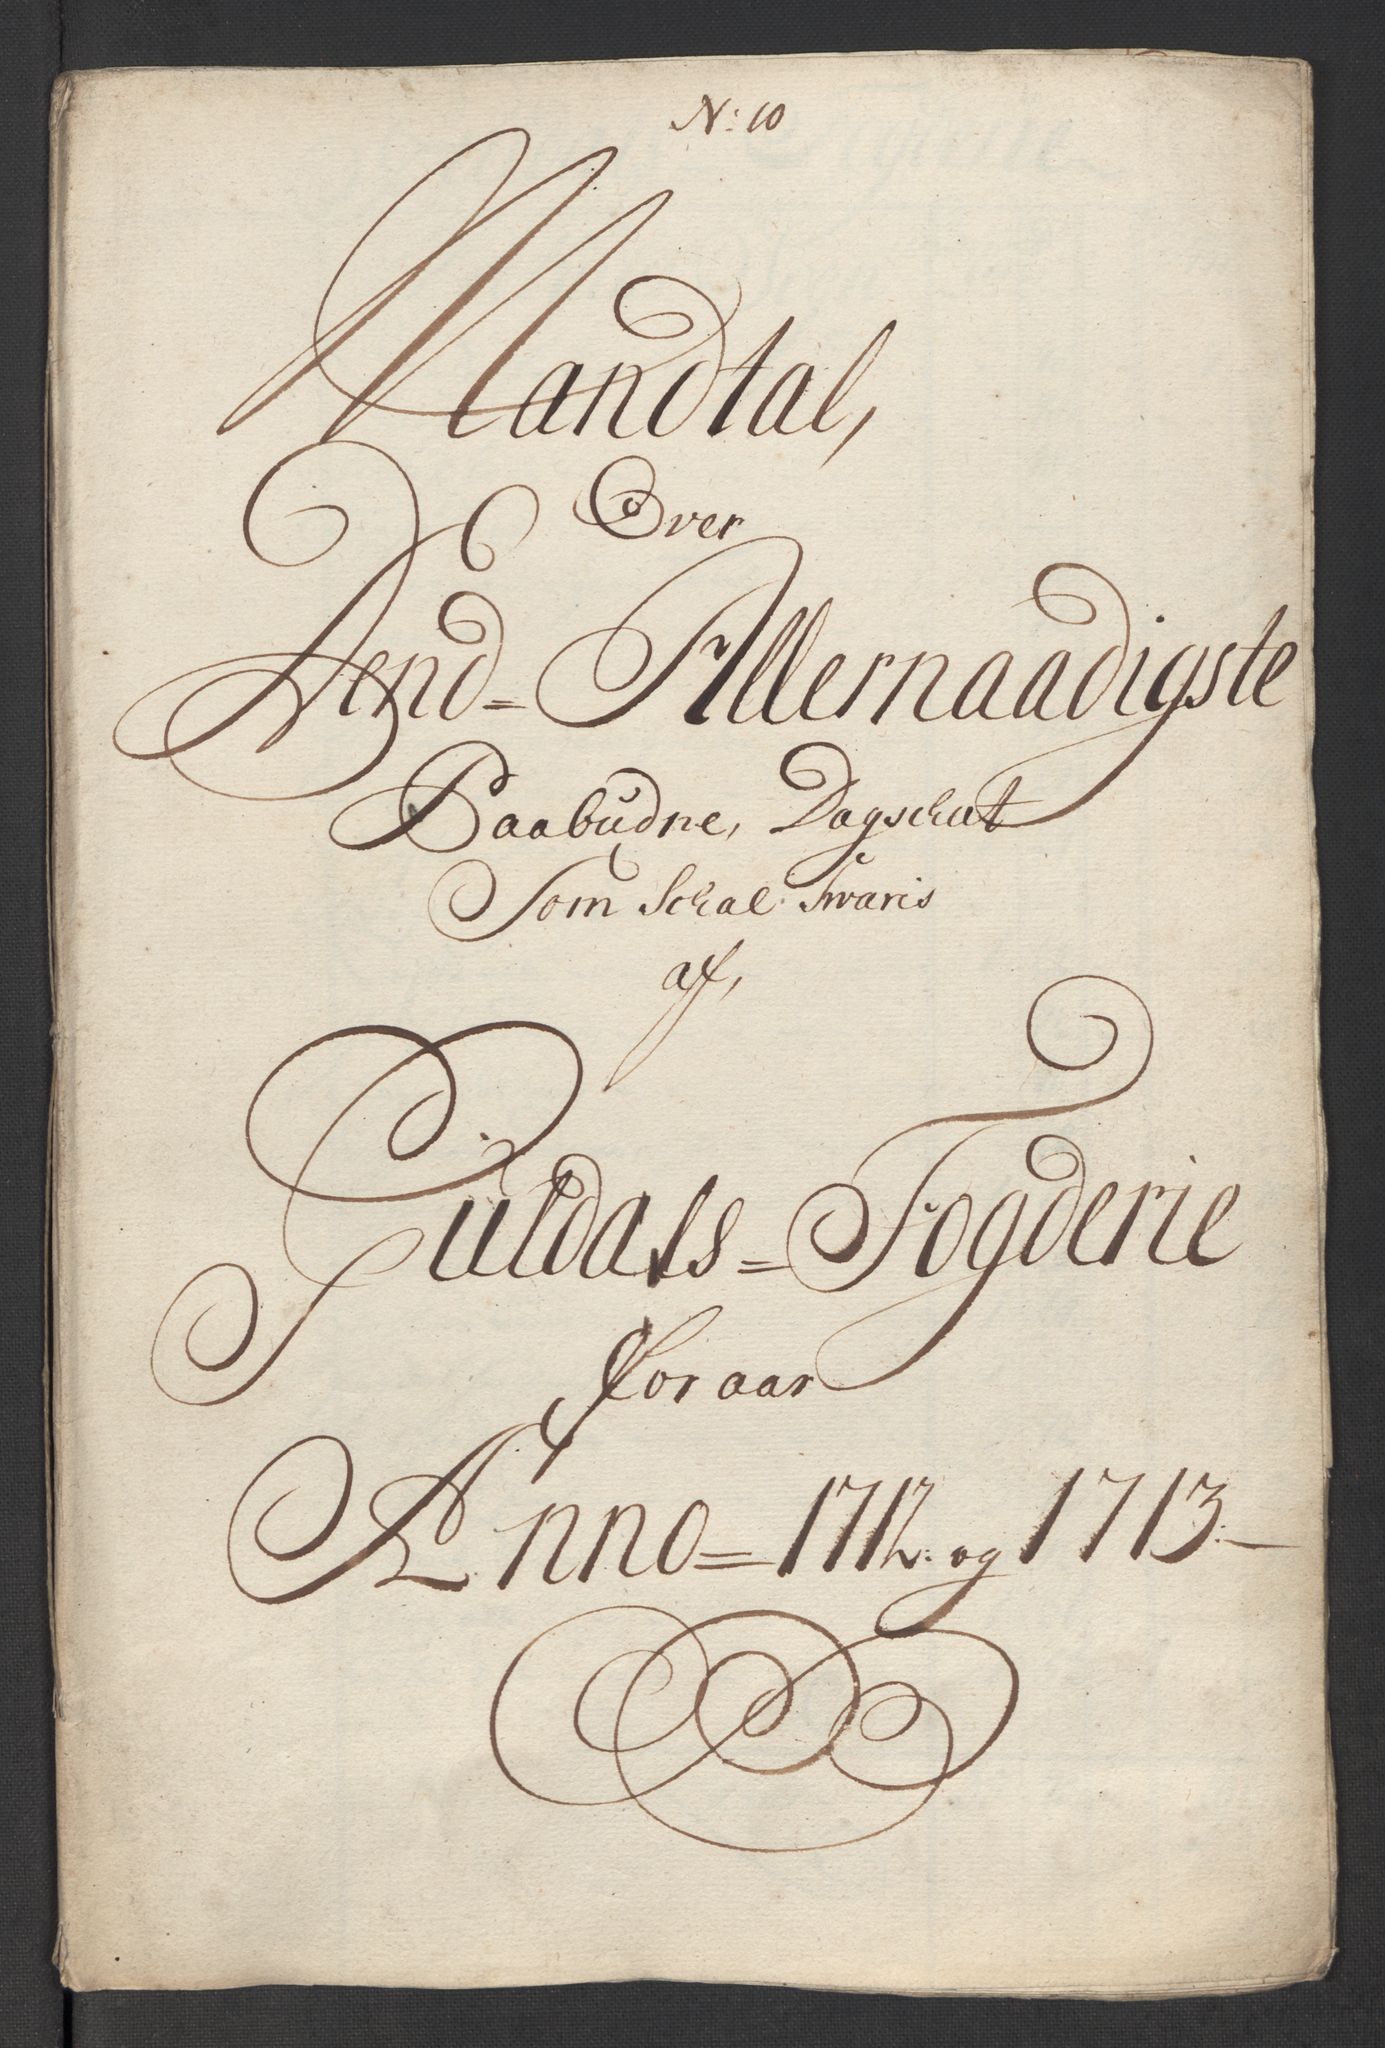 N: 10
Mandtal,
Over
Dend= Allernaadigste
Paabudne, Dagschat
Som Schal Swaris
af,
Guldals= Fogderie
for aar
Anno= 1712. og 1713.